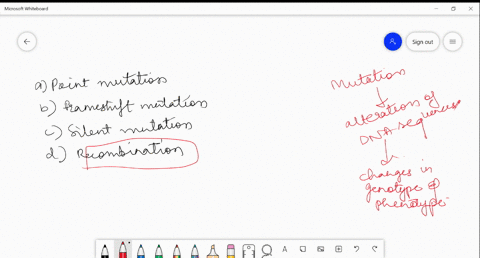 Microsoft Whiteboard
Sign out
a) Point mutation
b) frameshift mutation
c) Silent mutation
d) Recombination
Mutation
alterations of
DNA sequences
changes in
genotype &
phenotype